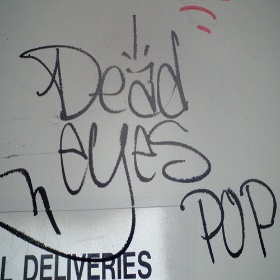 Dead
eyes
POP
L DELIVERIES